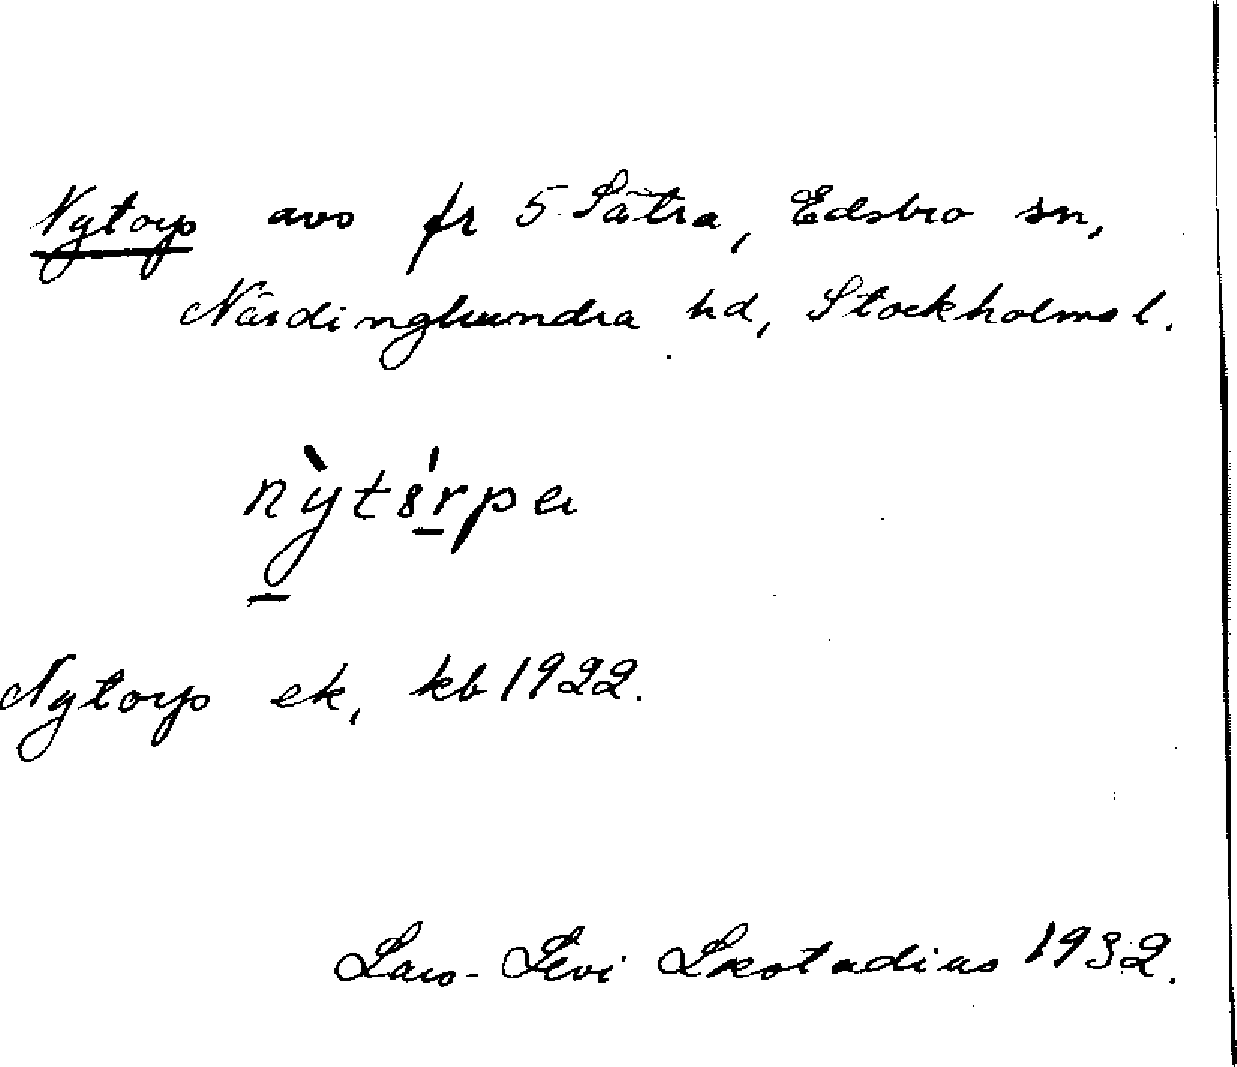 Nytorp avs fr 5 Sätra, Edsbro sn,
Närdinghundra hd, Stockholms l.
nỳtórpa
Nytorp ek, kb 1922.
Lars-Levi Læstadius 1932.